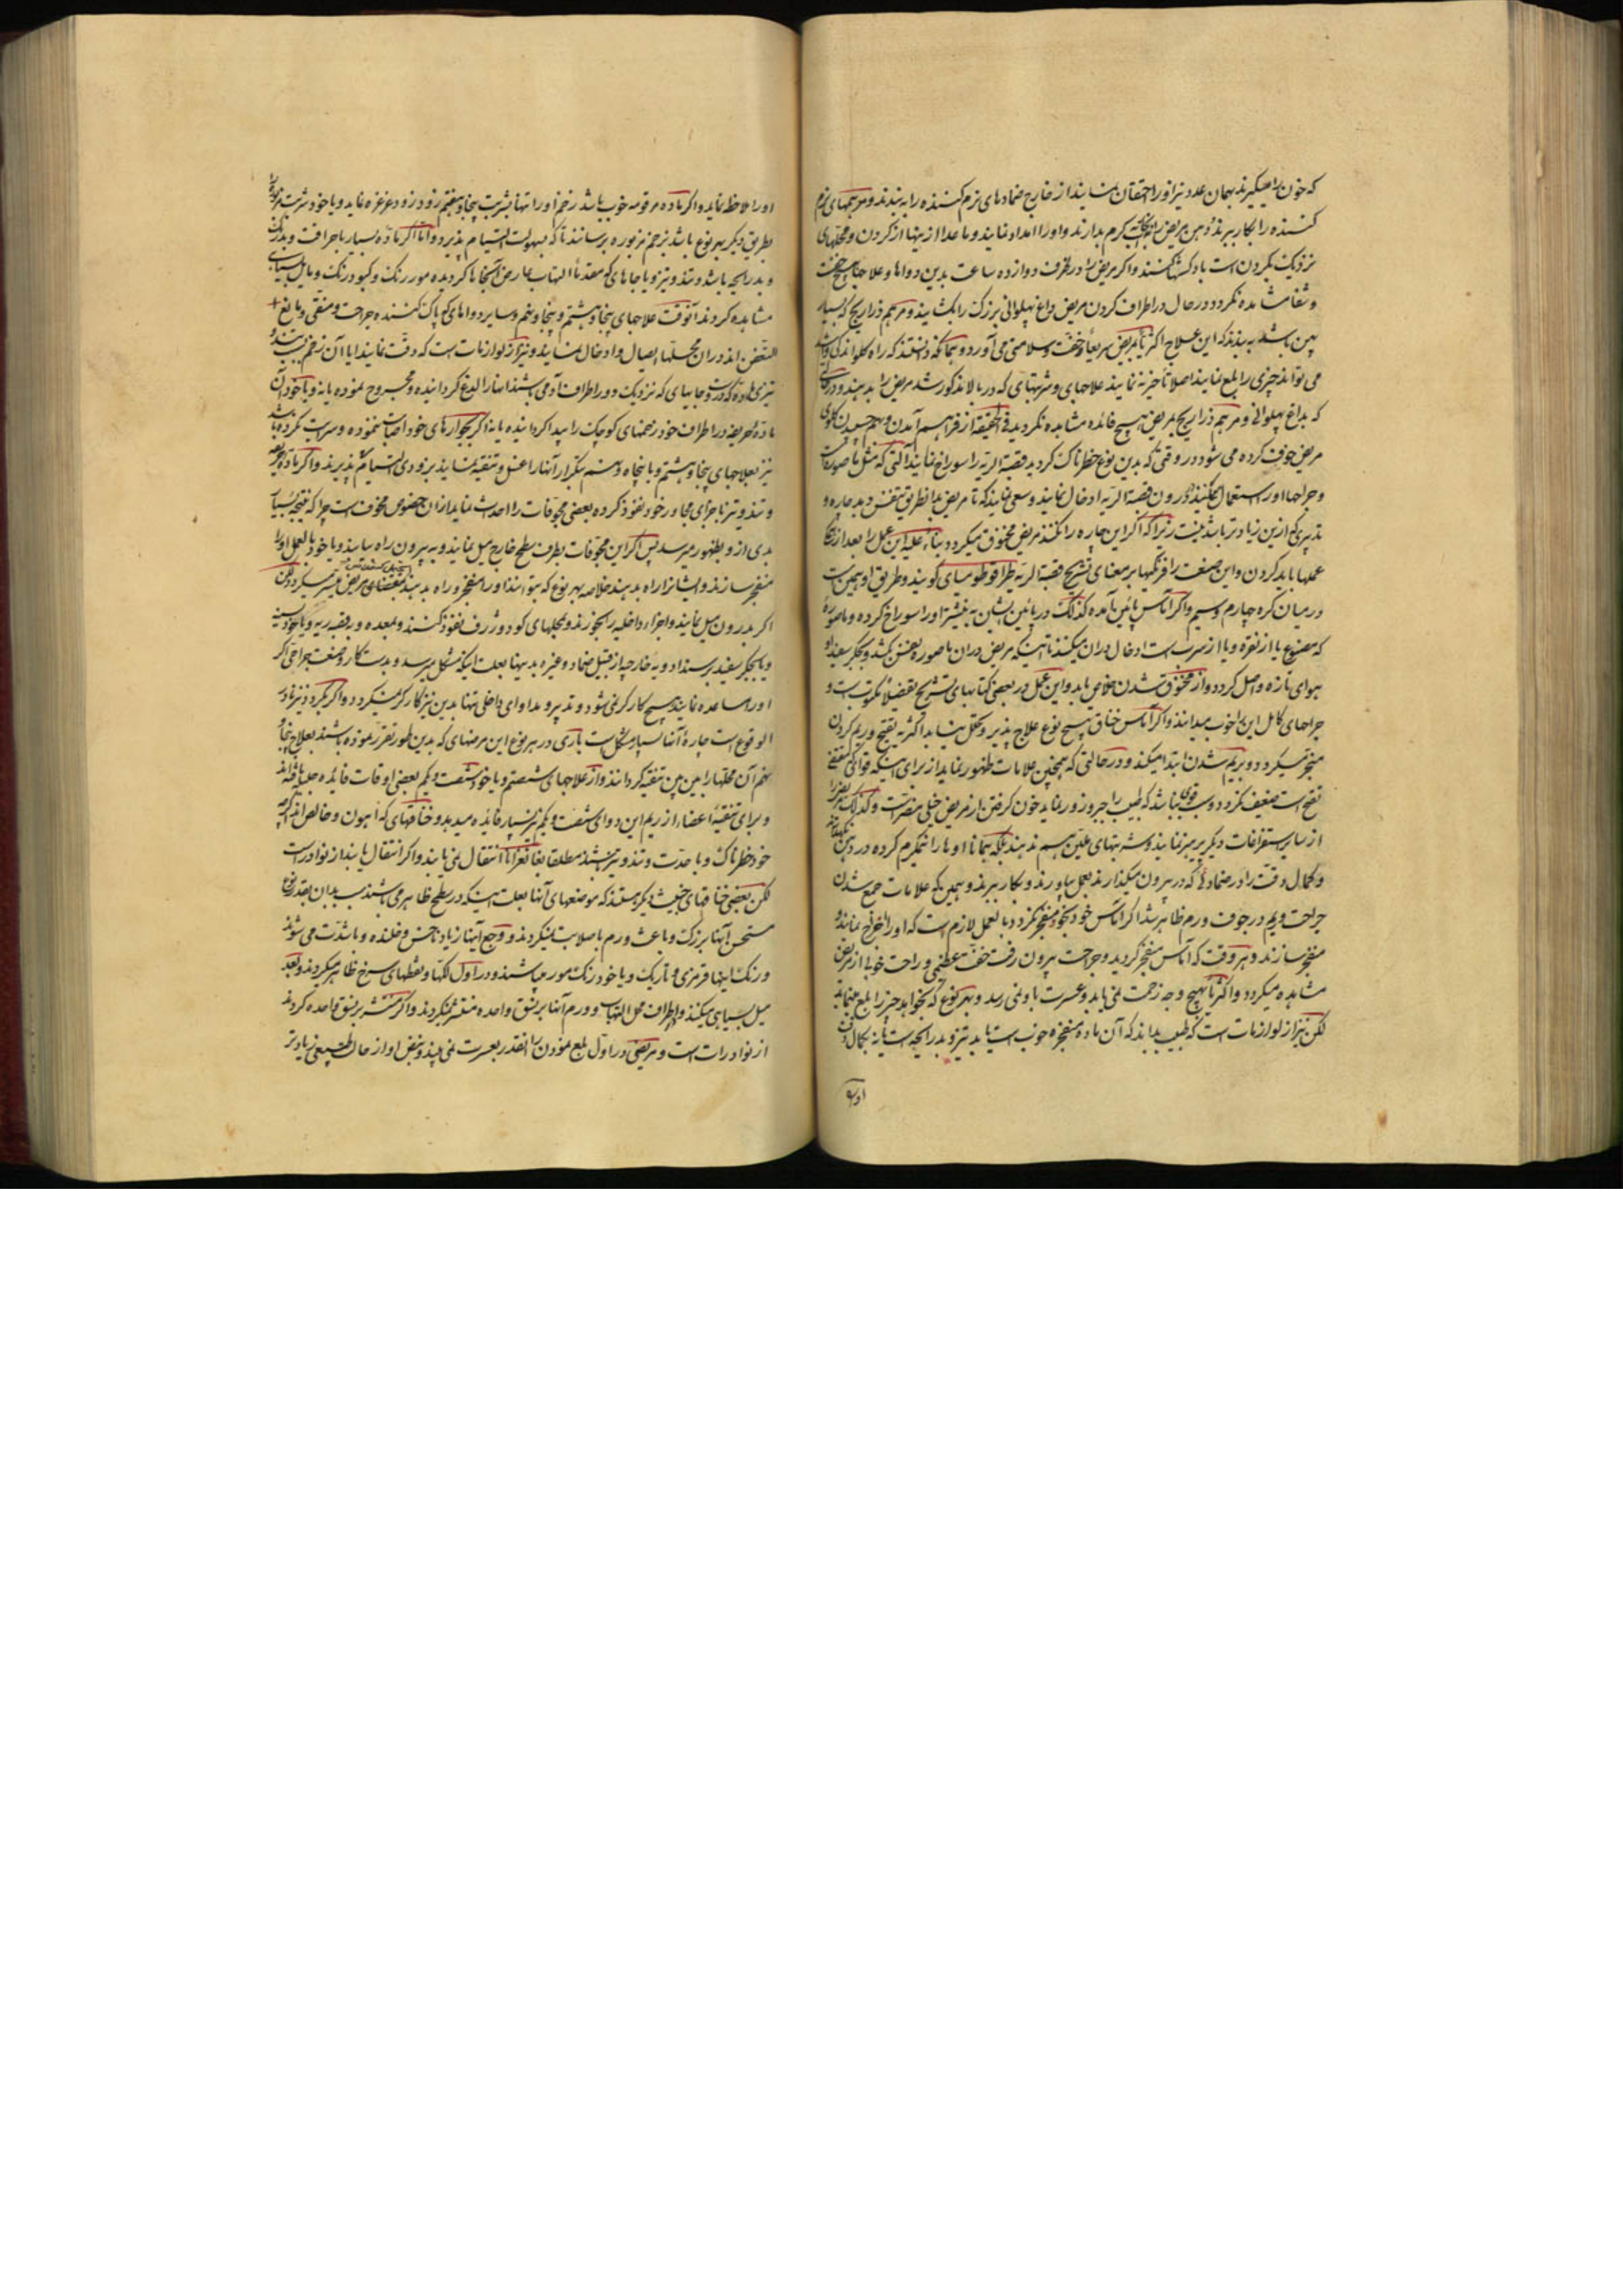 که خون را میگیرند بهمان عدد نیز او را احتقان نمایند از خارج ضمادهای نرم کننده را به بندند و مرهمهای نرم
کننده را بکار برند و دهن مریض را گرم بدارند و او را امداد نمایند و ما عدا از ینها از کردن و محلهای
نزدیک بکردن است بادکشها کنند و اگر مریض را در ظرف دوازده ساعت بدین دواها و علاجها هیچ خفت
و شفا مشاهده نگردد در حال در اطراف کردن مریض داغ پهلوانی بزرگ را بکشایند و مرهم ذراریح که بسیار
پهن باشد به بندند که این علاج اکثریا بمریض سریعا خفت و سلامتی می آورد و بمکانه دانستند که راه کلو اندکی
می تواند چیزی را بلع نمایند اصلا تأخیر نه نمایند علاجهای و شربتهای که در بالا مذکور شد مریض را بدهند و در
که بداغ پهلوانی و مرهم ذراریح بمریض هیچ فائده مشاهده نگردید فی الحقیقه از فراهم آمدن و بهم چسپیدن کلوی
مریض خوف کرده می شود در وقتی که بدین نوع خطرناک کردید قصبة الریه را سوراخ نمایند آلتی که مثل ماصوره است
و جراحها او را استعمال میکنند در درون قصبة الریه ادخال نمایند و سعی نمایند که تا مریض بدانطریق تنفس دیده چاره و
تدبیری که ازین زیادتر باشد نیست زیرا که اگر این چاره را نکنند مریض مخنوق میگردد بناء علیه این عمل را بعد از
عملها باید کردن و این صنعت را فرنگیها بر معنای تشریح قصبة الریه طراقوطومیای گویند و طریق او بهین است
در میان گره چهارم و سیم و اگر آماس پائین آمده کذلک در پائین ایشان به نیشتر او را سوراخ کرده و ماصوره
که مصنوع یا از نقره و یا از سرب است ادخال دران میکنند تا اینکه مریض دران ماصوره نفس کشد و بجکر سفید او
هوای تازه واصل گردد و از مخنوق شدن خلاص یابد و این عمل در بعضی کتابهای تشریح تفصیلا مکتوب است و
جراحهای کامل این را خوب میدانند و اگر آماس خناق هیچ نوع علاج پذیر و تحلل نیابد اکثر به تقیح و ریم کردن
منجر میگردد و بریم شدن ابتدا میکند و در حالتی که همچنین علامات ظهور نماید از برای اینکه قوای که مقتضی
نضج است ضعیف نگردد و سبب قوی نباشد که طبیب را جبر و زور نماید خون کرفتن از مریض خیلی مضرت است و کذلک
از سایر استفراغات دیگر پرهیز نمایند و شربتهای علین هم ندهند بلکه همانا او ها را نیمگرم کرده در دهن
و کمال دقت را در ضمادها که در بیرون میگذارند بعمل بیاورند و بکار برند و بهمین که علامات جمع شدن
جراحت و ریم در جوف ورم ظاهر شد اگر آماس خود بخود منفجر نگردد بالعمل لازم است که او را خراج نمایند و
منفجر سازند و هر وقت که آماس منفجر گردید و جراحت بیرون رفت خفت عظیمی و راحت خوبی از مریض
مشاهده میگردد و اکثریا بهیچ وجه زحمت نمی یابد و عسرت باو نمی رسد و بهر نوع که بخواهد چیز را بلع مینماید
لکن نیز از لوازمات است که طبیب بداند که آن ماده منفجره خوب است یا بد تیز و بد رایحه است یا نه بکمال
او را
او را ملاحظه نماید و اگر ماده مرقومه خوب باشد زخم او را تنها بشربت پنجاه و هفتم زود زود غرغره نماید و یا خود شربت
بطریق دیگر بهر نوع باشد بزخم مزبوره برسانند تا که بسهولت التیام پذیرد و اما اگر ماده بسیار با حرافت و بد رنگ
و بد رایحه باشد و تند و تیز و یا جاهای که مقدما التهاب عارض آنجاها گردیده مور رنگ و کبود رنگ و مایل بسیاهی
مشاهده گردند آنوقت علاجهای پنجاه و هشتم و پنجاه و نهم و سایر دواهای که پاک کننده جراحت و منقی و مانع
التعفن اند دران محلها ایصال و ادخال نمایند و نیز از لوازمات است که دقت نمایند ایا آن زخم بسبب
تیزی ماده که دارد جاهای که نزدیک و در اطراف او می باشند انها را لدغ گردانیده و مجروح نموده یا نه و یا خود آن
ماده حریفه در اطراف خود زخمهای کوچک را پیدا گردانیده یا نه اگر بجوارهای خود اصابت ننموده و سرایت نکرده باشد
نیز بعلاجهای پنجاه و هشتم و یا پنجاه و نهم بتکرار آنها را غسل و تنقیه نمایند بزودی التیام می پذیرند و اگر ماده
و تند و تیز باجزای مجاور خود نفوذ کرده بعضی مجوفات را احداث نماید ازان خصوص مخوف است چرا که نتیجه بسیار
بدی از و بظهور میرسد پس اگر این مجوفات بطرف سطح خارج میل نمایند و به بیرون راه یابند و یا خود بالعمل او را
منفجر سازند و ایشانرا راه بدهند خلاصه بهر نوع که بتوانند او را منفجر و راه بدهند بمقتضای مریض میسر میگردد لکن
اگر بدرون میل نمایند و اجزاء داخلیه را بخورند و بمحلهای گود و ژرف نفوذ کنند و بمعده و بقصبه ریه و یا خود بسینه
و یا بجکر سفید برسند ادویه خارجیه از قبیل ضماد و غیره بدینها بعلت اینکه مشکل میرسد و بدستکار و صنعت جراحی اگر
او را مساعده نمایند هیچ کارگر نمی شود و تدبیر و مداوای داخلی تنها بدین نیز کارگر نمیگردد و اگر بگردد نیز نادر
الوقوع است چاره آنها بسیار مشکل است باری در هر نوع این مرضهای که بدین طور تقرر نموده باشند بعلاج پنجاه
نهم آن محلها را بین بین تنقیه گردانند و از علاجهای شصتم و یا خود شصت و یکم بعضی اوقات فایده جلب یافته اند
و برای تنقیه اعضاء از ریم این دوای شصت و یکم نیز بسیار فائده میدهد و خناقهای که آهیون و خالص اند اگرچه
خود خطرناک و با حدت و تند و تیز باشند مطلقا بغانغرانا انتقال نمی یابند و اگر انتقال یابند از نوادر است
لکن بعضی خناقهای خبیث دیگر هستند که موضعهای آنها بعلت اینکه در سطح ظاهر می باشند سبب بدان بقدر نوع
مستحسن آنها بزرگ و باعث ورم با صلابت نمیگردند و وجع آنها زیاد ناخس و خلنده و با شدت می شوند
و رنگ اینها قرمزی و تاریک و یا خود رنگ مور میباشند و در اول لکها و نقطهای سرخ ظاهر میگردند و بعد
میل بسیاهی میکنند و اطراف محل التهاب و ورم آنها بر نسق واحده منتشر نمیگردند و اگر منتشر بر نسق واحده گردند
از نوادرات است و مریض در اول بلع نمودن را انقدر بعسرت نمی بیند و نبض او از حال طبیعی زیادتر